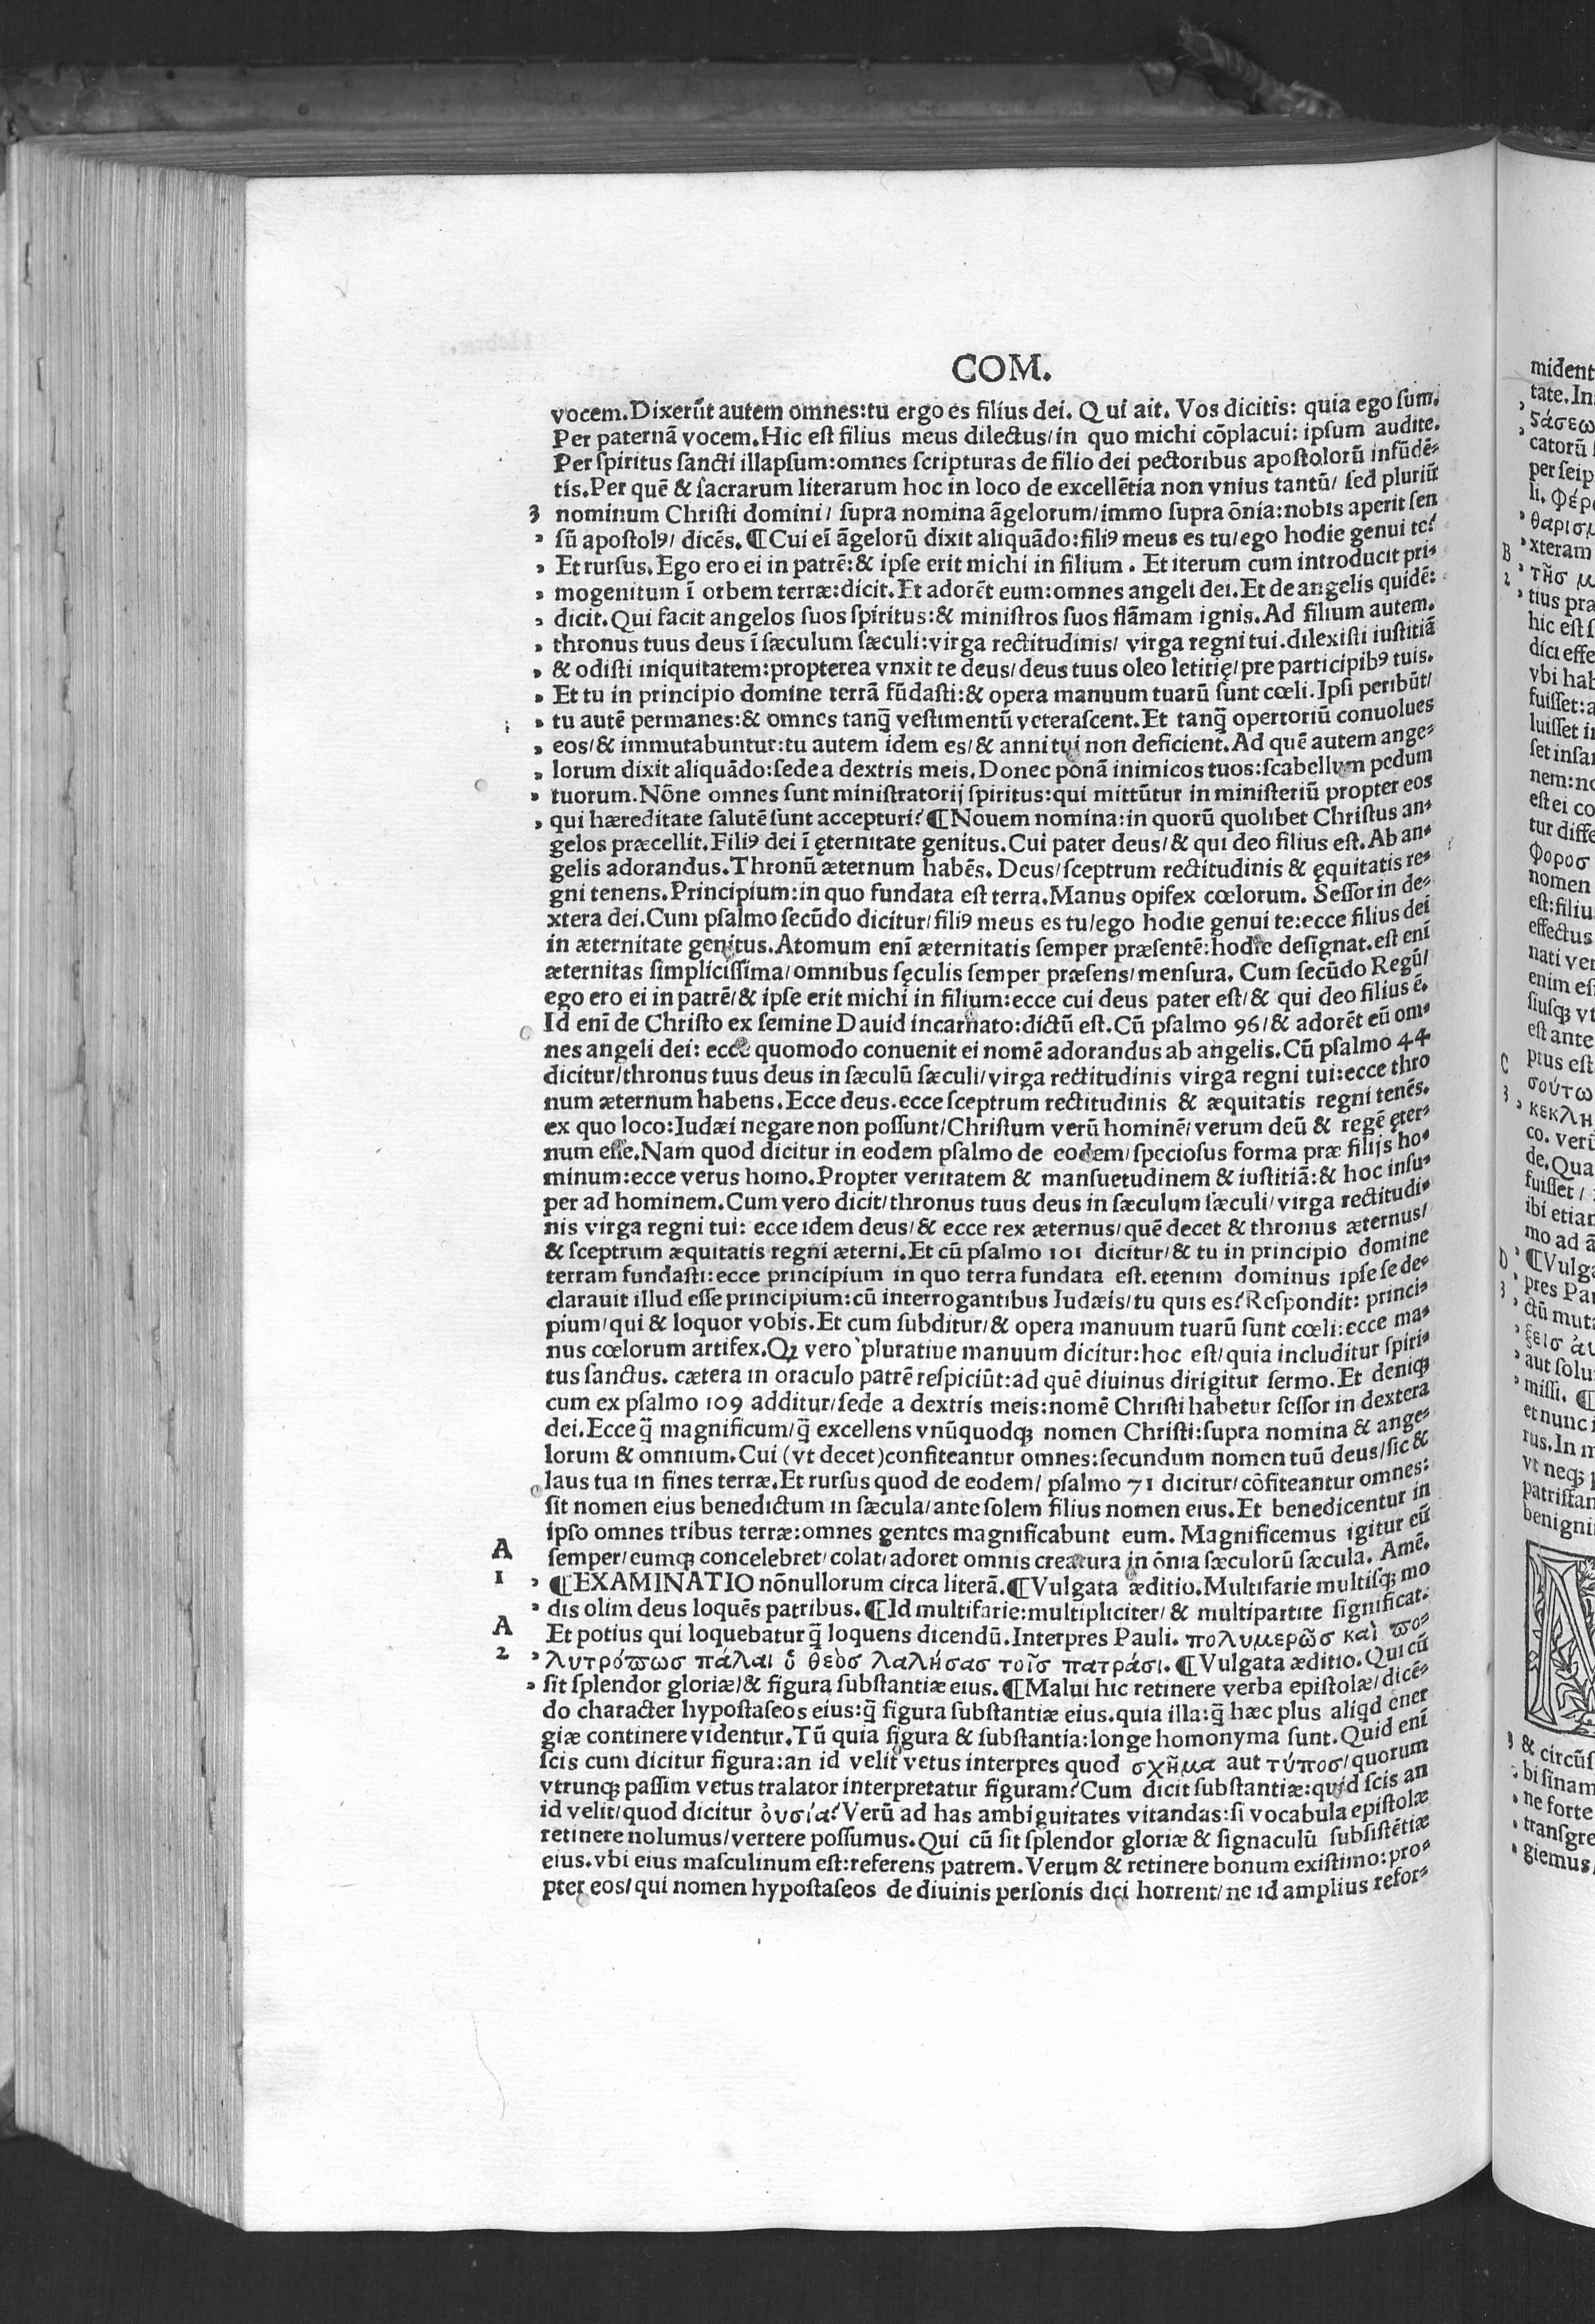 COM.
vocem.Dixerūt autem omnes:tu ergo es filius dei. Qui ait. Vos dicitis: quia ego ſum.
Per paternā vocem.Hic eſt filius meus dilectus/in quo michi cōplacui: ipſum audite.
Per ſpiritus ſancti illapſum:omnes ſcripturas de filio dei pectoribus apoſtolorū infūdē-
tis.Per quē & ſacrarum literarum hoc in loco de excellētia non vnius tantū/ ſed pluriū
3 nominum Chriſti domini/ ſupra nomina āgelorum/immo ſupra ōnia:nobis aperit ſen
ſū apoſtolꝰ/ dicēs. ¶Cui eī āgelorū dixit aliquādo:filiꝰ meus es tu/ego hodie genui te?
Et rurſus. Ego ero ei in patrē:& ipſe erit michi in filium. Et iterum cum introducit pri-
mogenitum ī orbem terræ:dicit. Et adorēt eum:omnes angeli dei. Et de angelis quidē:
dicit.Qui facit angelos ſuos ſpiritus:& miniſtros ſuos flāmam ignis. Ad filium autem.
thronus tuus deus ī ſæculum ſæculi:virga rectitudinis/ virga regni tui.dilexiſti iuſtitiā
& odiſti iniquitatem:propterea vnxit te deus/deus tuus oleo letitię/pre participibꝰ tuis.
Et tu in principio domine terrā fūdaſti:& opera manuum tuarū ſunt cœli.Ipſi peribūt/
tu autē permanes:& omnes tanq̄ veſtimentū veteraſcent.Et tanq̄ opertoriū conuolues
eos/& immutabuntur:tu autem idem es/& anni tui non deficient. Ad quē autem ange-
lorum dixit aliquādo:ſede a dextris meis. Donec ponā inimicos tuos:ſcabellum pedum
tuorum.Nōne omnes ſunt miniſtratorij ſpiritus:qui mittūtur in miniſteriū propter eos
qui hæreditate ſalutē ſunt accepturi? ¶Nouem nomina:in quorū quolibet Chriſtus an-
gelos præcellit.Filiꝰ dei ī ęternitate genitus. Cui pater deus/& qui deo filius eſt. Ab an-
gelis adorandus.Thronū æternum habēs. Deus/ſceptrum rectitudinis & ęquitatis re-
gni tenens.Principium:in quo fundata eſt terra.Manus opifex cœlorum. Seſſor in de-
xtera dei.Cum pſalmo ſecūdo dicitur/filiꝰ meus es tu/ego hodie genui te:ecce filius dei
in æternitate genitus.Atomum enī æternitatis ſemper præſentē:hodie deſignat.eſt enī
æternitas ſimpliciſſima/omnibus ſęculis ſemper præſens/menſura. Cum ſecūdo Regū/
ego ero ei in patrē/& ipſe erit michi in filium:ecce cui deus pater eſt/& qui deo filius ē.
Id enī de Chriſto ex ſemine Dauid incarnato:dictū eſt. Cū pſalmo 96/& adorēt eū om-
nes angeli dei: ecce quomodo conuenit ei nomē adorandus ab angelis.Cū pſalmo 44
dicitur/thronus tuus deus in ſæculū ſæculi/virga rectitudinis virga regni tui:ecce thro
num æternum habens. Ecce deus.ecce ſceptrum rectitudinis & æquitatis regni tenēs.
ex quo loco:Iudæi negare non poſſunt/Chriſtum verū hominē/verum deū & regē ęter-
num eſſe.Nam quod dicitur in eodem pſalmo de eodem/ſpecioſus forma præ filijs ho-
minum:ecce verus homo.Propter veritatem & manſuetudinem & iuſtitiā:& hoc inſu-
per ad hominem.Cum vero dicit/thronus tuus deus in ſæculum ſæculi/virga rectitudi-
nis virga regni tui: ecce idem deus/& ecce rex æternus/quē decet & thronus æternus/
& ſceptrum æquitatis regni æterni. Et cū pſalmo 101 dicitur/& tu in principio domine
terram fundaſti:ecce principium in quo terra fundata eſt. etenim dominus ipſe ſe de-
clarauit illud eſſe principium:cū interrogantibus Iudæis/tu quis es? Reſpondit: princi-
pium/qui & loquor vobis. Et cum ſubditur/& opera manuum tuarū ſunt cœli:ecce ma-
nus cœlorum artifex.Qꝫ vero pluratiue manuum dicitur:hoc eſt/quia includitur ſpiri-
tus ſanctus. cætera in oraculo patrē reſpiciūt:ad quē diuinus dirigitur ſermo. Et deniqꝫ
cum ex pſalmo 109 additur/ſede a dextris meis:nomē Chriſti habetur ſeſſor in dextera
dei. Ecce q̄ magnificum/q̄ excellens vnūquodqꝫ nomen Chriſti:ſupra nomina & ange-
lorum & omnium. Cui (vt decet)confiteantur omnes:ſecundum nomen tuū deus/ſic &
laus tua in fines terræ.Et rurſus quod de eodem/ pſalmo 71 dicitur/cōfiteantur omnes:
ſit nomen eius benedictum in ſæcula/ante ſolem filius nomen eius. Et benedicentur in
ipſo omnes tribus terræ:omnes gentes magnificabunt eum. Magnificemus igitur eū
A ſemper/eumqꝫ concelebret/colat/adoret omnis creatura in ōnia ſæculorū ſæcula. Amē.
1 ¶EXAMINATIO nōnullorum circa literā. ¶Vulgata æditio.Multifarie multiſqꝫ mo
dis olim deus loquēs patribus. ¶Id multifarie:multipliciter/ & multipartite ſignificat.
A Et potius qui loquebatur q̄ loquens dicendū.Interpres Pauli. πολυμερῶσ καὶ πο-
2 λυτρόπωσ πάλαι ὁ θεὸσ λαλήσασ τοῖσ πατράσι. ¶Vulgata æditio. Qui cū
ſit ſplendor gloriæ/& figura ſubſtantiæ eius. ¶Malui hic retinere verba epiſtolæ/dicē-
do character hypoſtaſeos eius:q̄ figura ſubſtantiæ eius.quia illa:q̄ hæc plus aliqd ener
giæ continere videntur. Tū quia figura & ſubſtantia:longe homonyma ſunt. Quid enī
ſcis cum dicitur figura:an id velit vetus interpres quod σχῆμα aut τύποσ/quorum
vtrunqꝫ paſſim vetus tralator interpretatur figuram? Cum dicit ſubſtantiæ:quid ſcis an
id velit/quod dicitur ὀυσία? Verū ad has ambiguitates vitandas:ſi vocabula epiſtolæ
retinere nolumus/vertere poſſumus. Qui cū ſit ſplendor gloriæ & ſignaculū ſubſiſtētiæ
eius.vbi eius maſculinum eſt:referens patrem. Verum & retinere bonum exiſtimo:pro-
pter eos/qui nomen hypoſtaſeos de diuinis perſonis dici horrent/ne id amplius refor-
mident
tate.In
ςάσεω
catorū
per ſeip
li. Φέρ
θαρισμ
B xteram
2 τῆσ μ
tius pra
hic eſt ſ
dici eſſe
vbi hab
fuiſſet:a
luiſſet i
ſet inſa
nem:no
eſt ei co
tur diffe
φοροσ
nomen
eſt:filiu
effectus
nati ver
enim eſ
ſiuſqꝫ vt
eſt ante
C ptus eſt
3 σούτω
κεκλη
co. verū
de.Qua
fuiſſet /
ibi etiar
mo ad ā
D ¶Vulga
3 pres Pau
ctū muta
ξεισ ἀυ
aut ſolu
miſſi. ¶
et nunc i
rus.In m
vt neqꝫ
patriſſan
benigni
& circūſ
bi ſinam
ne forte
tranſgre
giemus